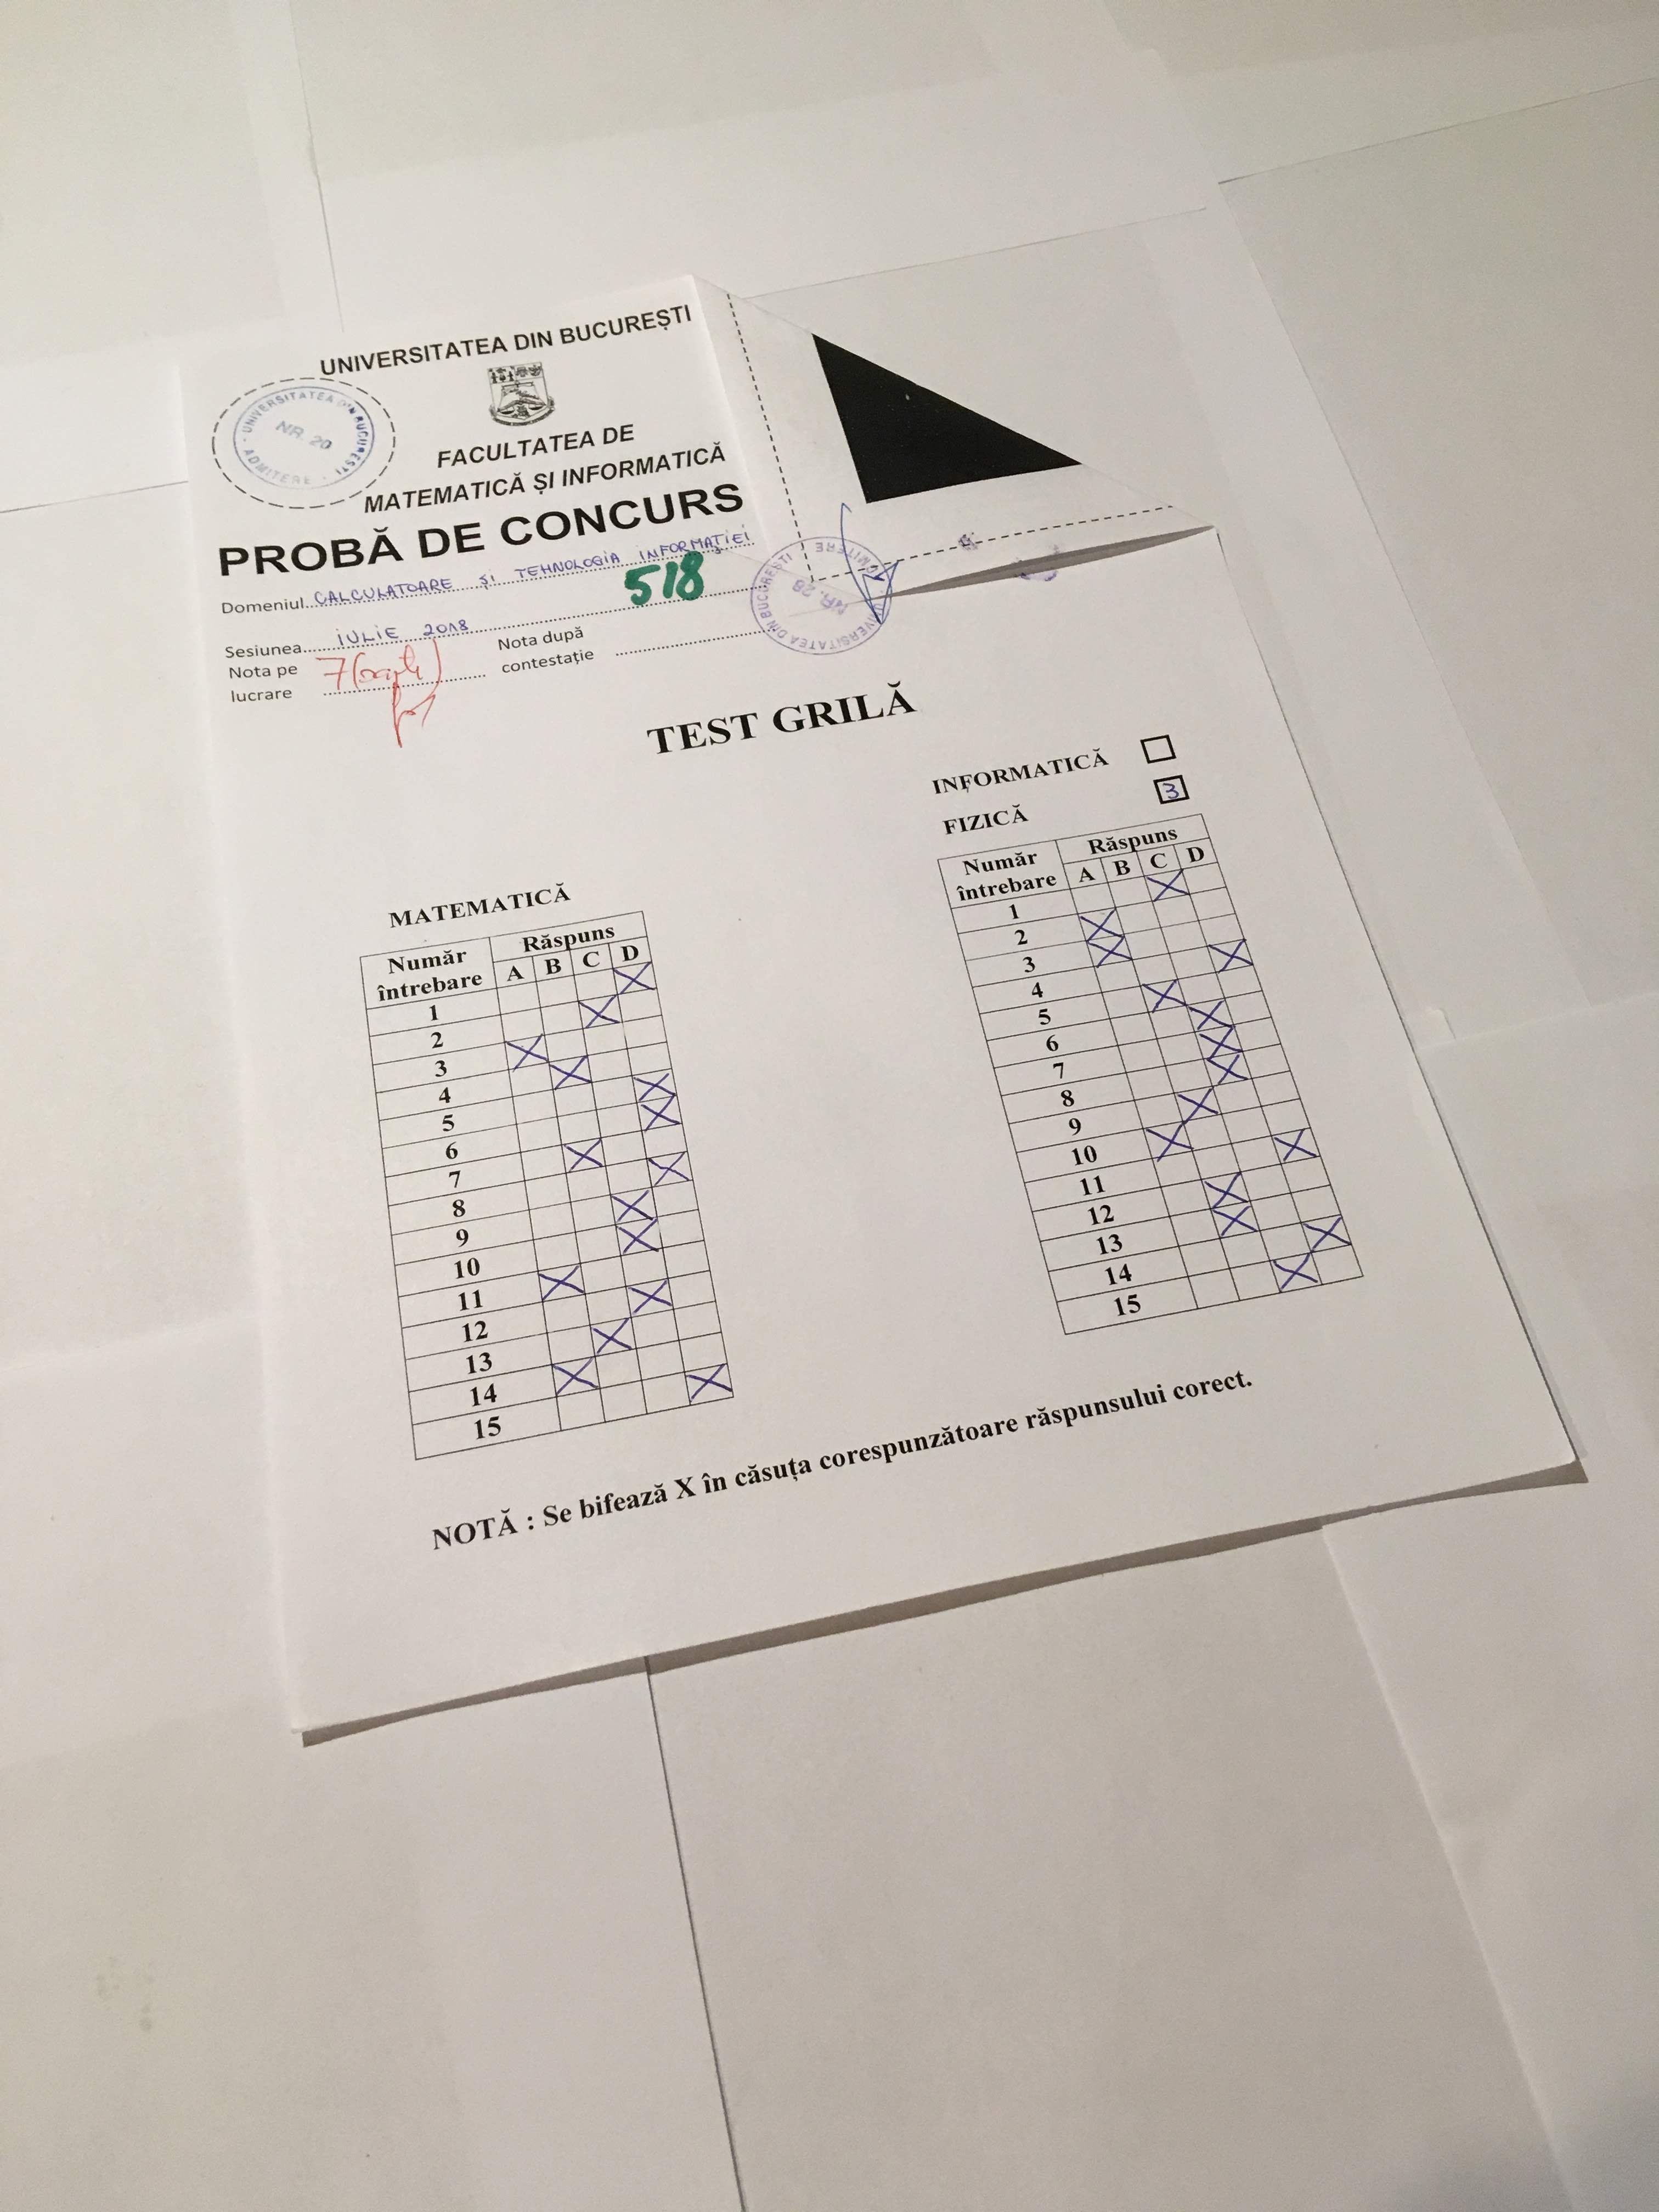 UNIVERSITATEA DIN BUCUREȘTI
UNIVERSITATEA DIN BUCUREȘTI
NR. 20
ADMITERE
FACULTATEA DE
MATEMATICĂ ȘI INFORMATICĂ
PROBĂ DE CONCURS
Domeniul CALCULATOARE ȘI TEHNOLOGIA INFORMAȚIEI
518
Sesiunea IULIE 2018
Nota pe lucrare 7(șapte)
Nota după contestație
UNIVERSITATEA DIN BUCUREȘTI
ADMITERE
NR. 28
TEST GRILĂ
INFORMATICĂ
FIZICĂ 3
MATEMATICĂ
Număr întrebare
Răspuns
A B C D
1 X
2 X
3 X
4 X
5 X
6 X
7 X
8 X
9 X
10 X
11 X
12 X
13 X
14 X
15 X
Număr întrebare
Răspuns
A B C D
1 X
2 X
3 X
4 X
5 X
6 X
7 X
8 X
9 X
10 X
11 X
12 X
13 X
14 X
15 X
NOTĂ : Se bifează X în căsuța corespunzătoare răspunsului corect.